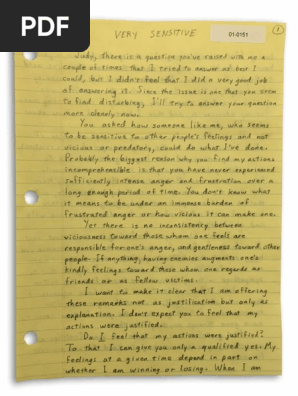 PDF
VERY SENSITIVE
01-0151
1
Judy, there is a question you've raised with me a
couple of times that I tried to answer as best I
could, but I didn't feel that I did a very good job
of answering it. Since the issue is one that you seem
to find disturbing, I'll try to answer your question
more clearly now.
You asked how someone like me, who seems
to be sensitive to other people's feelings and not
vicious or predatory, could do what I've done.
Probably the biggest reason why you find my actions
incomprehensible is that you have never experienced
sufficiently intense anger and frustration over a
long enough period of time. You don't know what
it means to be under an immense burden of
frustrated anger or how vicious it can make one.
Yet there is no inconsistency between
viciousness toward those whom one feels are
responsible for one's anger, and gentleness toward other
people. If anything, having enemies augments one's
kindly feelings toward those whom one regards as
friends or as fellow victims.
I want to make it clear that I am offering
these remarks not as justification but only as
explanation. I don't expect you to feel that my
actions were justified.
Do I feel that my actions were justified?
To that I can give you only a qualified yes. My
feelings at a given time depend in part on
whether I am winning or losing. When I am